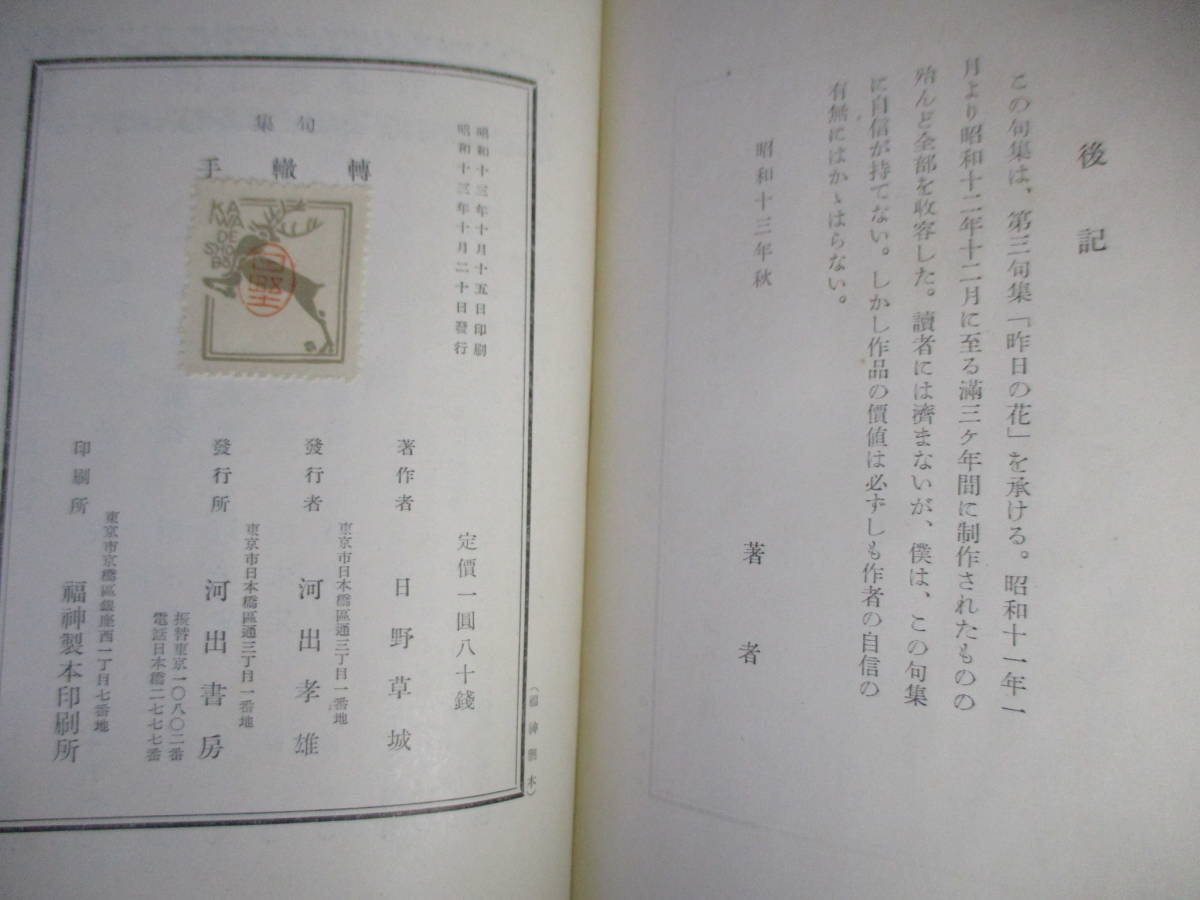 後記
この句集は、第三句集「昨日の花」を承ける。昭和十一年一
月より昭和十二年十二月に至る滿三ケ年間に制作されたものの
殆んど全部を收容した。讀者には濟まないが、僕は、この句集
に自信が持てない。しかし作品の價値は必ずしも作者の自信の
有無にはかゝはらない。
昭和十三年秋
著者
昭和十三年十月十五日印刷
昭和十三年十月二十日發行
句集
轉轍手
KAWADE
SHOBO
定價一圓八十錢
著作者 日野草城
東京市日本橋區通三丁目一番地
發行者 河出孝雄
東京市日本橋區通三丁目一番地
發行所 河出書房
振替東京一〇八〇二番
電話日本橋二七七七番
東京市京橋區銀座西一丁目七番地
印刷所 福神製本印刷所
(福神製本)